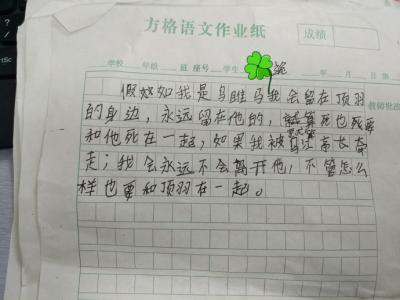 方格语文作业纸
成绩
学校 年级 班 座号 学生 年 月 日 第
教师批改
假如如我是乌骓马我会留在项羽
的身边，永远留在他的，就算死也死要
和他死在一起，如果我被乌江亭长牵
走；我会永远不会离开他，不管怎么
样也要和项羽在一起。